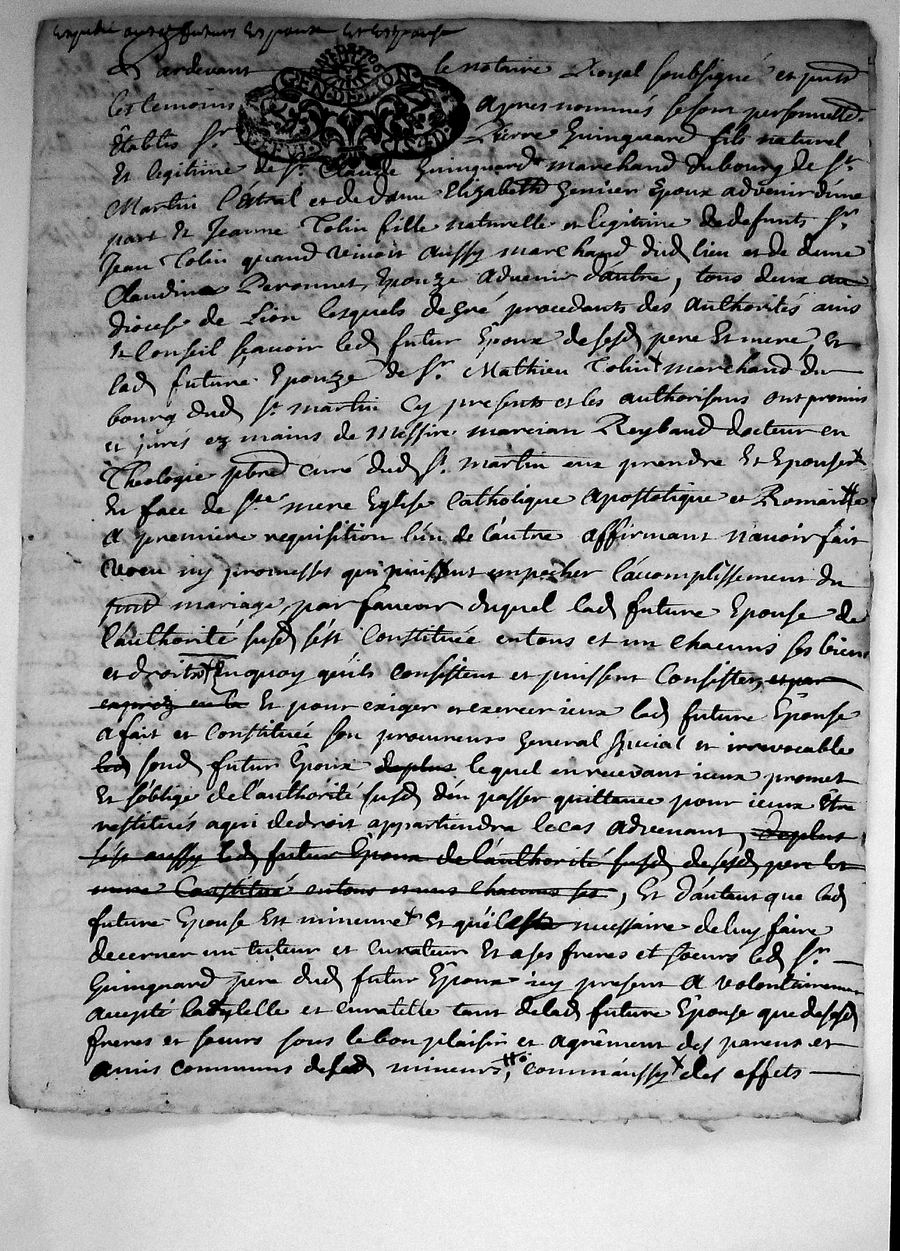 Expedié aux futurs Epoux Et Epouse
GEN. DE LION
Pardevant le notaire Royal soubsigné et puts
les temoins apres nommés se sont personnelle.
Etablis Sr. Pierre Guinquard fils naturel
Et legitime de Sr. Claude Guinquard marchand du bourg de St.
Martin Lestral et de dame Elizabeth Epoux advenir dune
part Et Jeanne Colin fille naturelle et legitime de defunts Sr.
Jean Colin quand vivoit aussy marchand dud lieu et de dame
Claudine Peronnet, Epouze advenir dautre, tous deux au
diocese de Lion lesquels de gré procedants des authorités avis
Et Conseil scavoir led futur Epoux de sesd pere Et mere, Et
lad future Epouze de Sr. Mathieu Colin marchand du
bourg dud St. martin Cy presents et les authorisans ont promis
et jurés ez mains de Messire marcian Reybaud docteur en
Theologie pbre curé dud St. martin eux prendre Et Epouser
En face de Ste mere Eglise Catholique apostolique et Romaine
a premiere requisition lun de lautre affirmant navoir fait
voeu ny promesses qui puissent empecher lacomplissement du
mariage, par faveur duquel lad future Epouse de
lauthorité susd sest Constituée en tous et un chacuns ses biens
et droits En quoy quils Consistent et puissent Consister, et par
Et pour exiger et exercer iceux lad future Epouse
a fait et Constitué son procureur general special et irrevocable
led sond futur Epoux de plus lequel en recevant iceux promet
Et soblige de lauthorité susd den passer quittance pour iceux Etre
restitués a qui de droit appartiendra le cas advenant, de plus
sest aussy led futur Epoux de lauthorité susd de sesd pere Et
mere Constitué en tous et uns chacuns ses, Et dautant que lad
future Epouse Est mineure Et quil est necessaire de luy faire
decerner un tuteur et curateur Et a ses freres et soeurs led Sr.
Guinquard pere dud futur Epoux icy present a volontairement
accepté la tutelle et curatelle tant de lad future Epouse que de sesd
freres et soeurs sous le bon plaisir et agrement des parens et
amis communs desd mineurs, comme aussy des effets